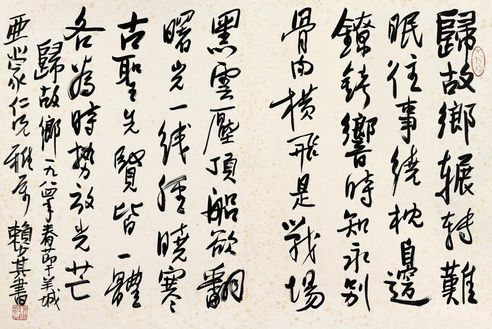 歸故鄉輾轉難
眠往事繞枕邊
鐐銬響時知永別
骨肉橫飛是戰場
黑雲壓頂船欲翻
曙光一线曉寒
古聖先賢皆一體
各為時勢放光芒
歸故鄉一九八四年春節于羊城
亞仁兄雅屬賴少其書